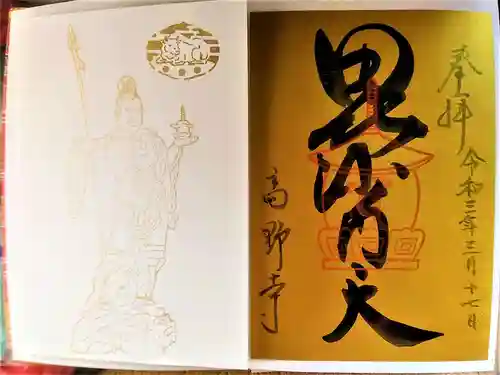 奉拝
令和三年三月十七日
毘沙门天
高野寺